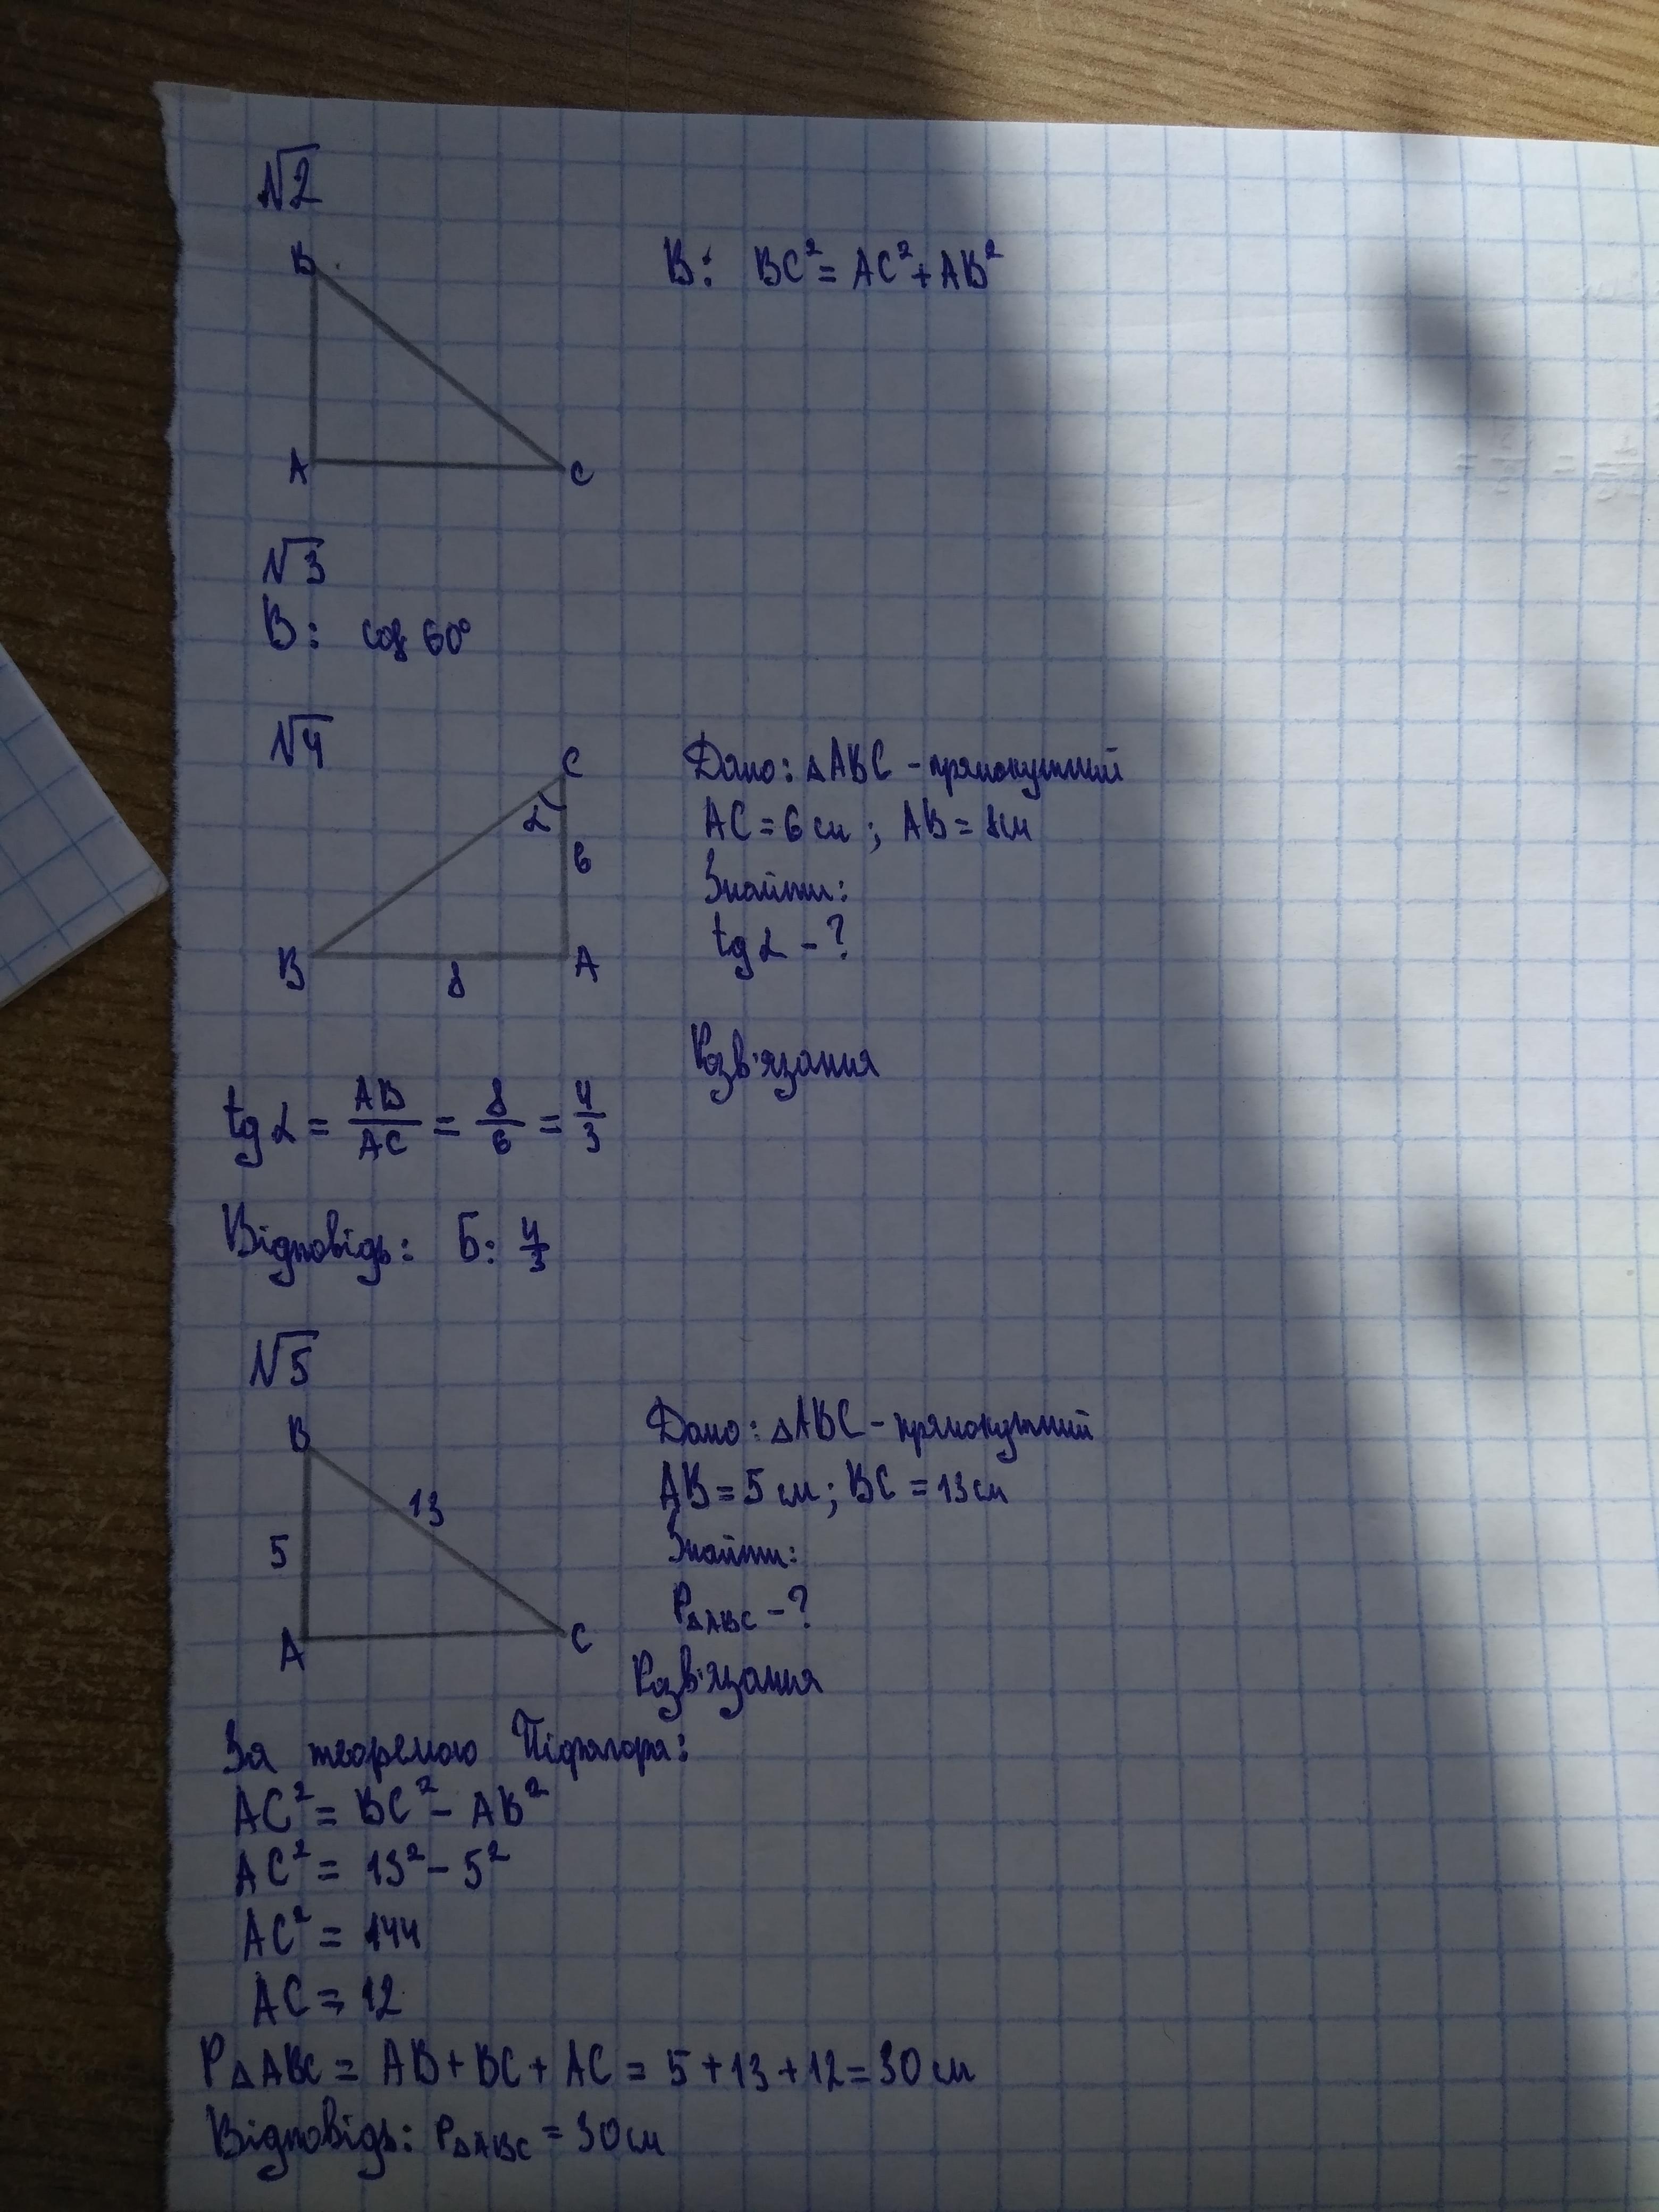 №2
B
B: BC² = AC² + AB²
A
C
№3
В: cos 60°
№4
C
α
6
B
8
A
Дано: △ABC - прямокутний
AC = 6 см ; AB = 8см
Знайти:
tg α - ?
Розв'язання
tg α = AB/AC = 8/6 = 4/3
Відповідь: Б: 4/3
№5
B
13
5
A
C
Дано: △ABC - прямокутний
AB = 5 см ; BC = 13см
Знайти:
P△ABC - ?
Розв'язання
За теоремою Піфагора:
AC² = BC² - AB²
AC² = 13² - 5²
AC² = 144
AC = 12
P△ABC = AB + BC + AC = 5 + 13 + 12 = 30 см
Відповідь: P△ABC = 30см